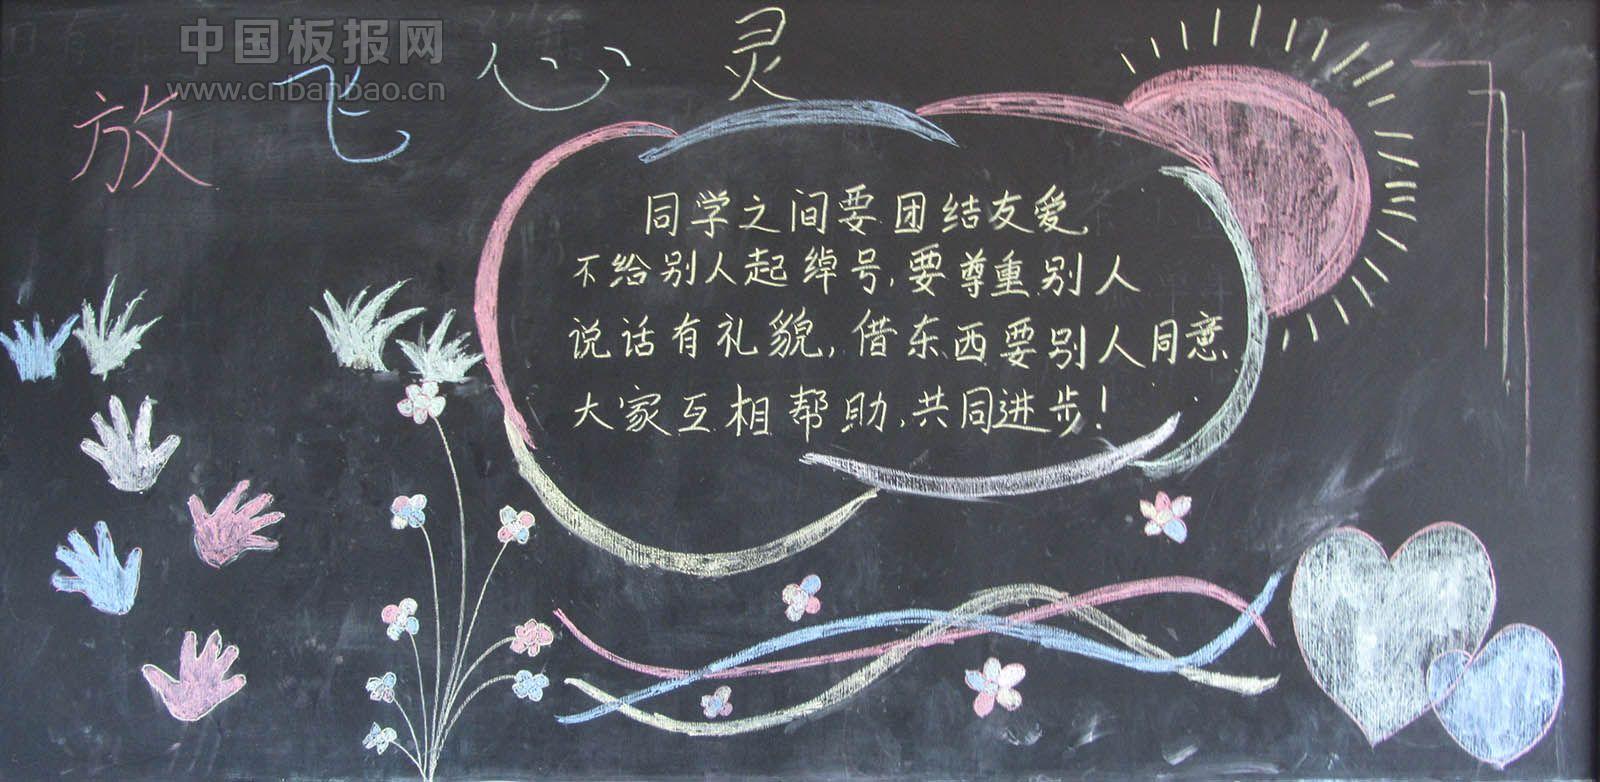 中国板报网
www.cnbanbao.cn
放飞心灵
同学之间要团结友爱
不给别人起绰号,要尊重别人
说话有礼貌,借东西要别人同意
大家互相帮助,共同进步!